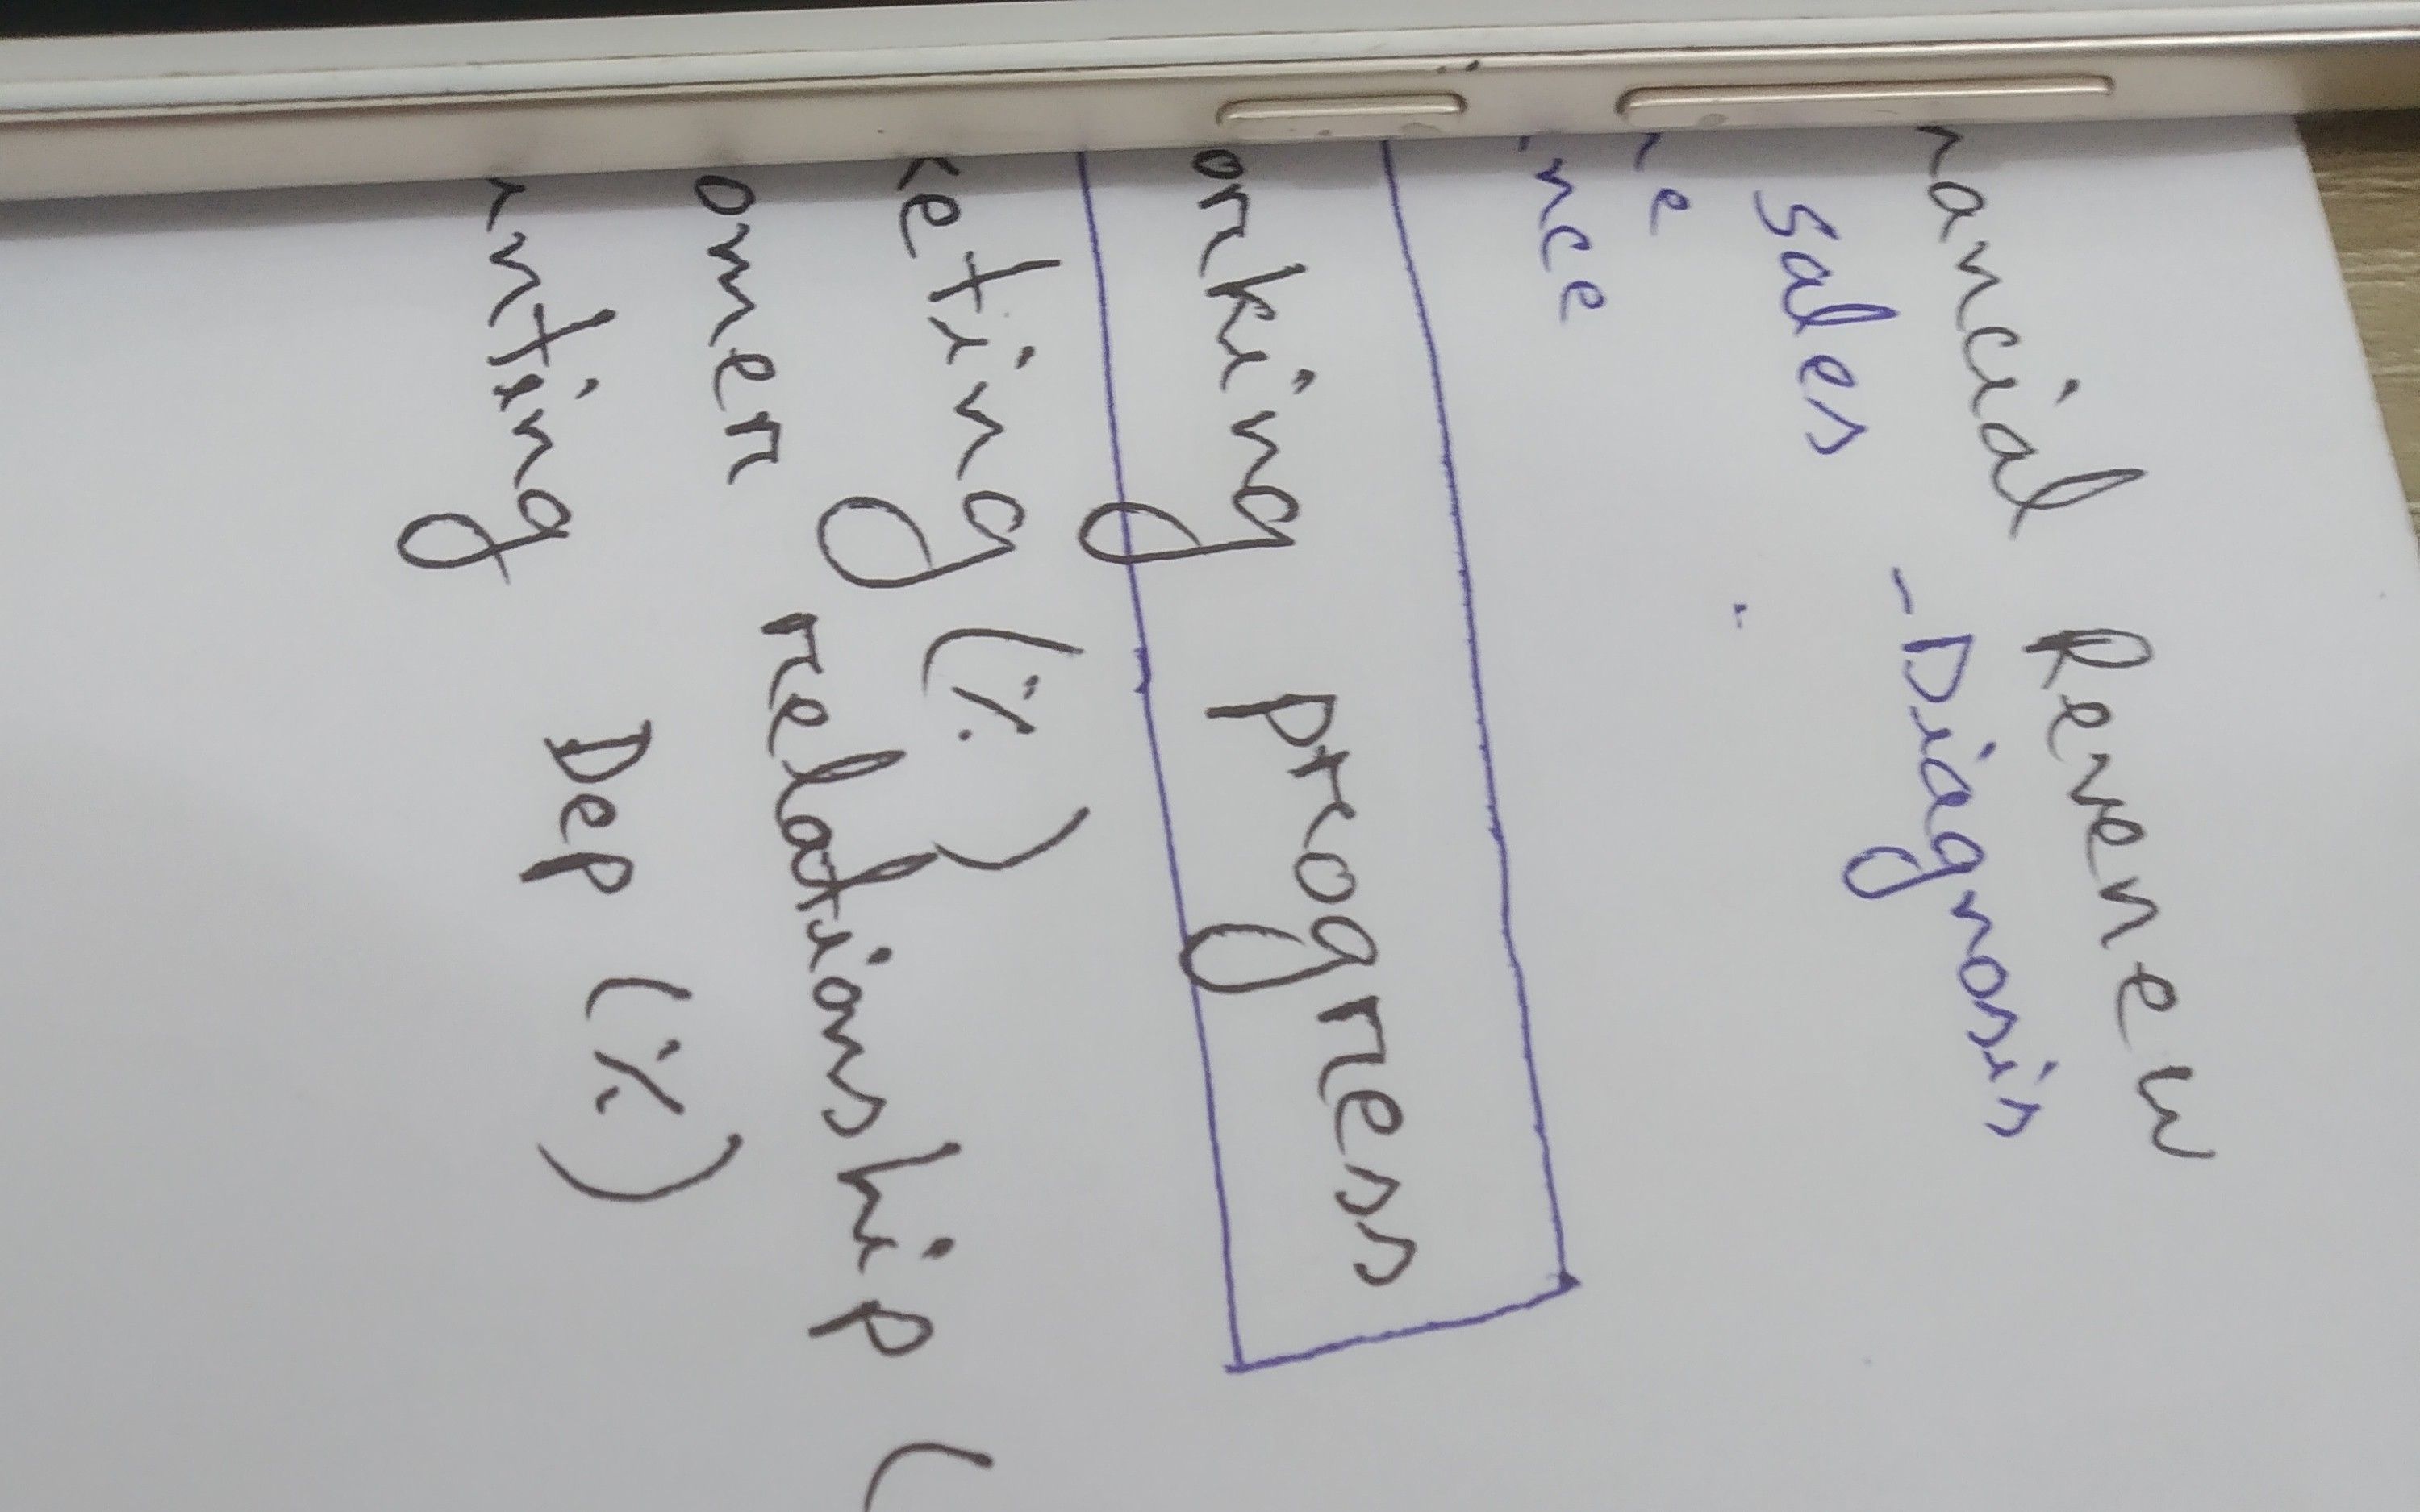 nancial Revenew
sales - Diagnosis
e
nce
orking progress
keting (%)
omer relationship (
nting Dep (%)